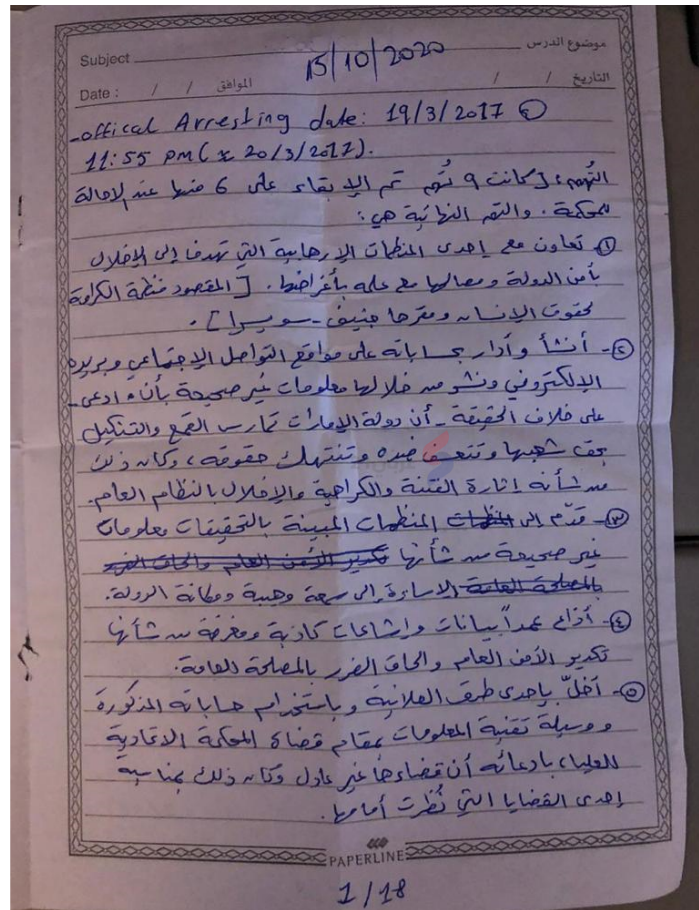 Subject موضوع الدرس
15/10/2020
Date : / / الموافق / / التاريخ
-offical Arresting date: 19/3/2017 @
11:55 PM (x 20/3/2017).
التُهم: [كانت 9 تُهم تم الإبقاء على 6 منها عند الإحالة
للمحكمة. والتهم النهائية هي:
١- تعاون مع إحدى المنظمات الإرهابية التي تهدف إلى الإخلال
بأمن الدولة ومصالحها مع علمه بأغراضها. [المقصود منظمة الكرامة
لحقوق الإنسان ومقرها جنيف - سويسرا].
٢- أنشأ وأدار حساباته على مواقع التواصل الاجتماعي وبريده
الإلكتروني ونشر من خلالها معلومات غير صحيحة بأن ادعى -
على خلاف الحقيقة - أن دولة الإمارات تمارس القمع والتنكيل
بحق شعبها وتتعسف ضده وتنتهك حقوقه، وكان ذلك
من شأنه إثارة الفتنة والكراهية والإخلال بالنظام العام.
٣- قدّم إلى المنظمات المبينة بالتحقيقات معلومات
غير صحيحة من شأنها تكدير الأمن العام والحاق الضرر
بالمصلحة العامة الإساءة إلى سمعة وهيبة ومكانة الدولة.
٤- أذاع عمداً بيانات وإشاعات كاذبة ومغرضة من شأنها
تكدير الأمن العام والحاق الضرر بالمصلحة العامة.
٥- أخلّ بإحدى طرق العلانية وباستخدام حساباته المذكورة
ووسيلة تقنية المعلومات بمقام قضاة المحكمة الاتحادية
العليا، بادعائه أن قضاءها غير عادل وكان ذلك بمناسبة
إحدى القضايا التي نُظرت أمامها.
PAPERLINE
1/18